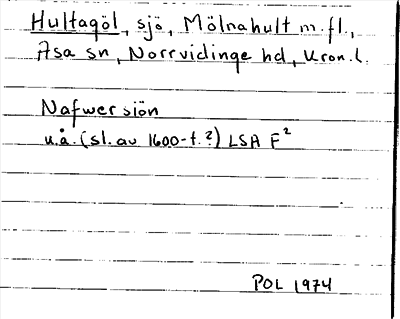 Hultagöl, sjö, Mölnahult m.fl.,
Asa sn, Norrvidinge hd, Kron.l.
Nafwer siön
u.å. (sl. av 1600-t.?) LSA F²
POL 1974